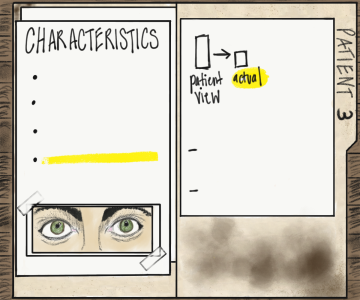 CHARACTERISTICS
patient
view
actual
PATIENT 3